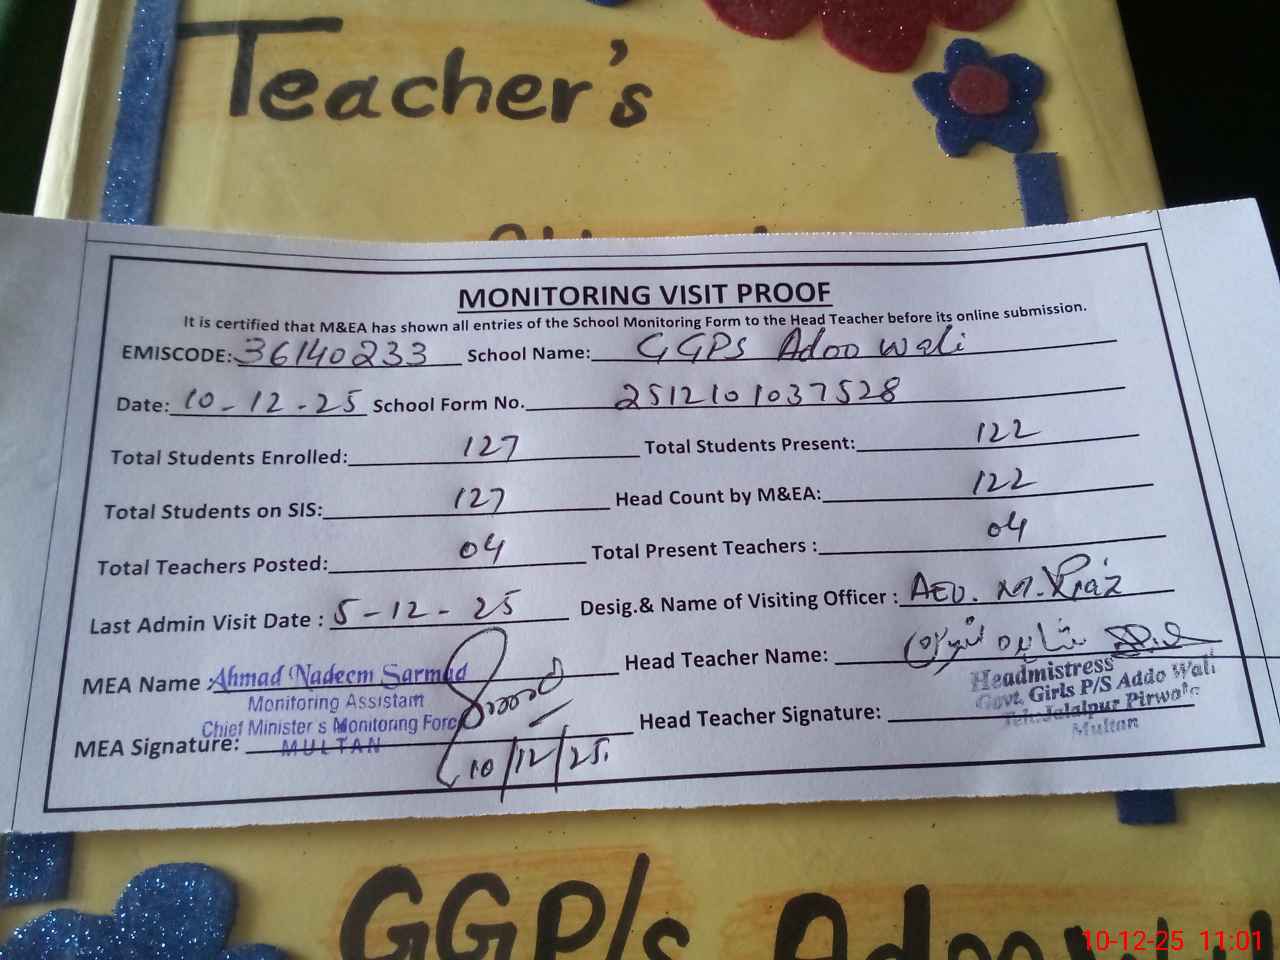 Teacher's
MONITORING VISIT PROOF
It is certified that M&EA has shown all entries of the School Monitoring Form to the Head Teacher before its online submission.
EMISCODE: 36140233 School Name: GGPS Adoo wali
Date: 10-12-25 School Form No. 2512101037528
Total Students Enrolled: 127 Total Students Present: 122
Total Students on SIS: 127 Head Count by M&EA: 122
Total Teachers Posted: 04 Total Present Teachers : 04
Last Admin Visit Date : 5-12-25 Desig.& Name of Visiting Officer : AEO. M.Riaz
MEA Name Ahmad Nadeem Sarmad Head Teacher Name:
Monitoring Assistant
Chief Minister's Monitoring Force
MEA Signature: MULTAN Head Teacher Signature:
10/12/25.
Headmistress
Govt. Girls P/S Addo Wali
Teh. Jalalpur Pirwala
Multan
GGP/s Adoo
10-12-25 11:01